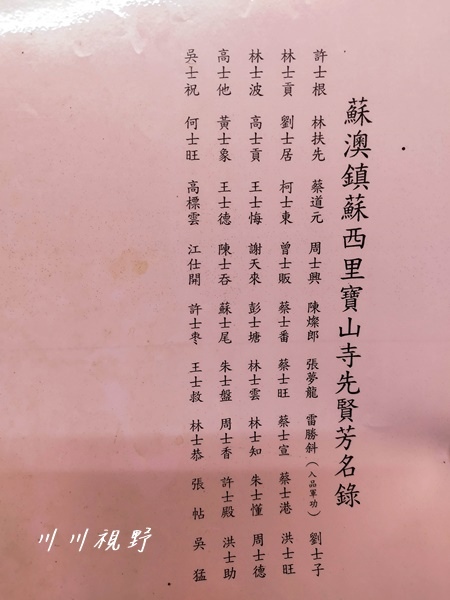 蘇澳鎮蘇西里寶山寺先賢芳名錄
許士根 林扶先 蔡道元 周士興 陳燦郎 張夢龍 雷勝斜(入品軍功) 劉士子
林士貢 劉士居 柯士東 曾士販 蔡士番 蔡士旺 蔡士宣 蔡士港 洪士旺
林士波 高士貢 王士悔 謝天來 彭士塘 林士雲 林士知 朱士懂 周士德
高士他 黃士象 王士德 陳士吞 蘇士尾 朱士盤 周士香 許士殿 洪士助
吳士祝 何士旺 高標雲 江仕開 許士枣 王士救 林士恭 張帖 吳猛
川川視野